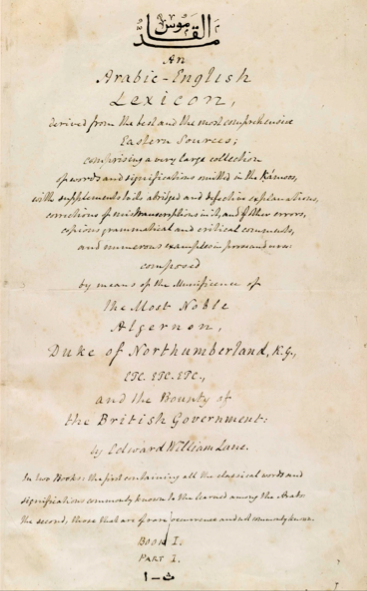 مد القاموس
An
Arabic-English
Lexicon,
derived from the best and the most comprehensive
Eastern Sources;
comprising a very large collection
of words and significations omitted in the Kámoos,
with supplements to its abridged and defective explanations,
corrections of mistranscriptions in it, and of other errors,
copious grammatical and critical comments,
and numerous examples in prose and verse:
composed
by means of the Munificence of
the Most Noble
Algernon,
Duke of Northumberland, K.G.,
ETC. ETC. ETC.,
and the Bounty of
the British Government:
by Edward William Lane.
In two Books: the first containing all the classical words and
significations commonly known to the learned among the Arabs:
the second, those that are of rare occurrence and not commonly known.
BOOK I.
PART I.
ا-ث